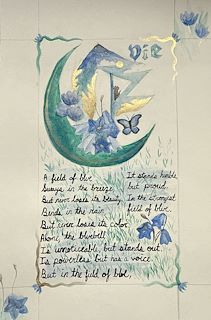 vie
A field of blue
Sways in the breeze
But never loses its beauty,
Bends in the rain
But never loses its color
Alone, the bluebell
Is unnoticeable, but stands out.
Is powerless but has a voice.
But in the field of blue,
It stands humble
but proud.
In the strongest
field of blue.